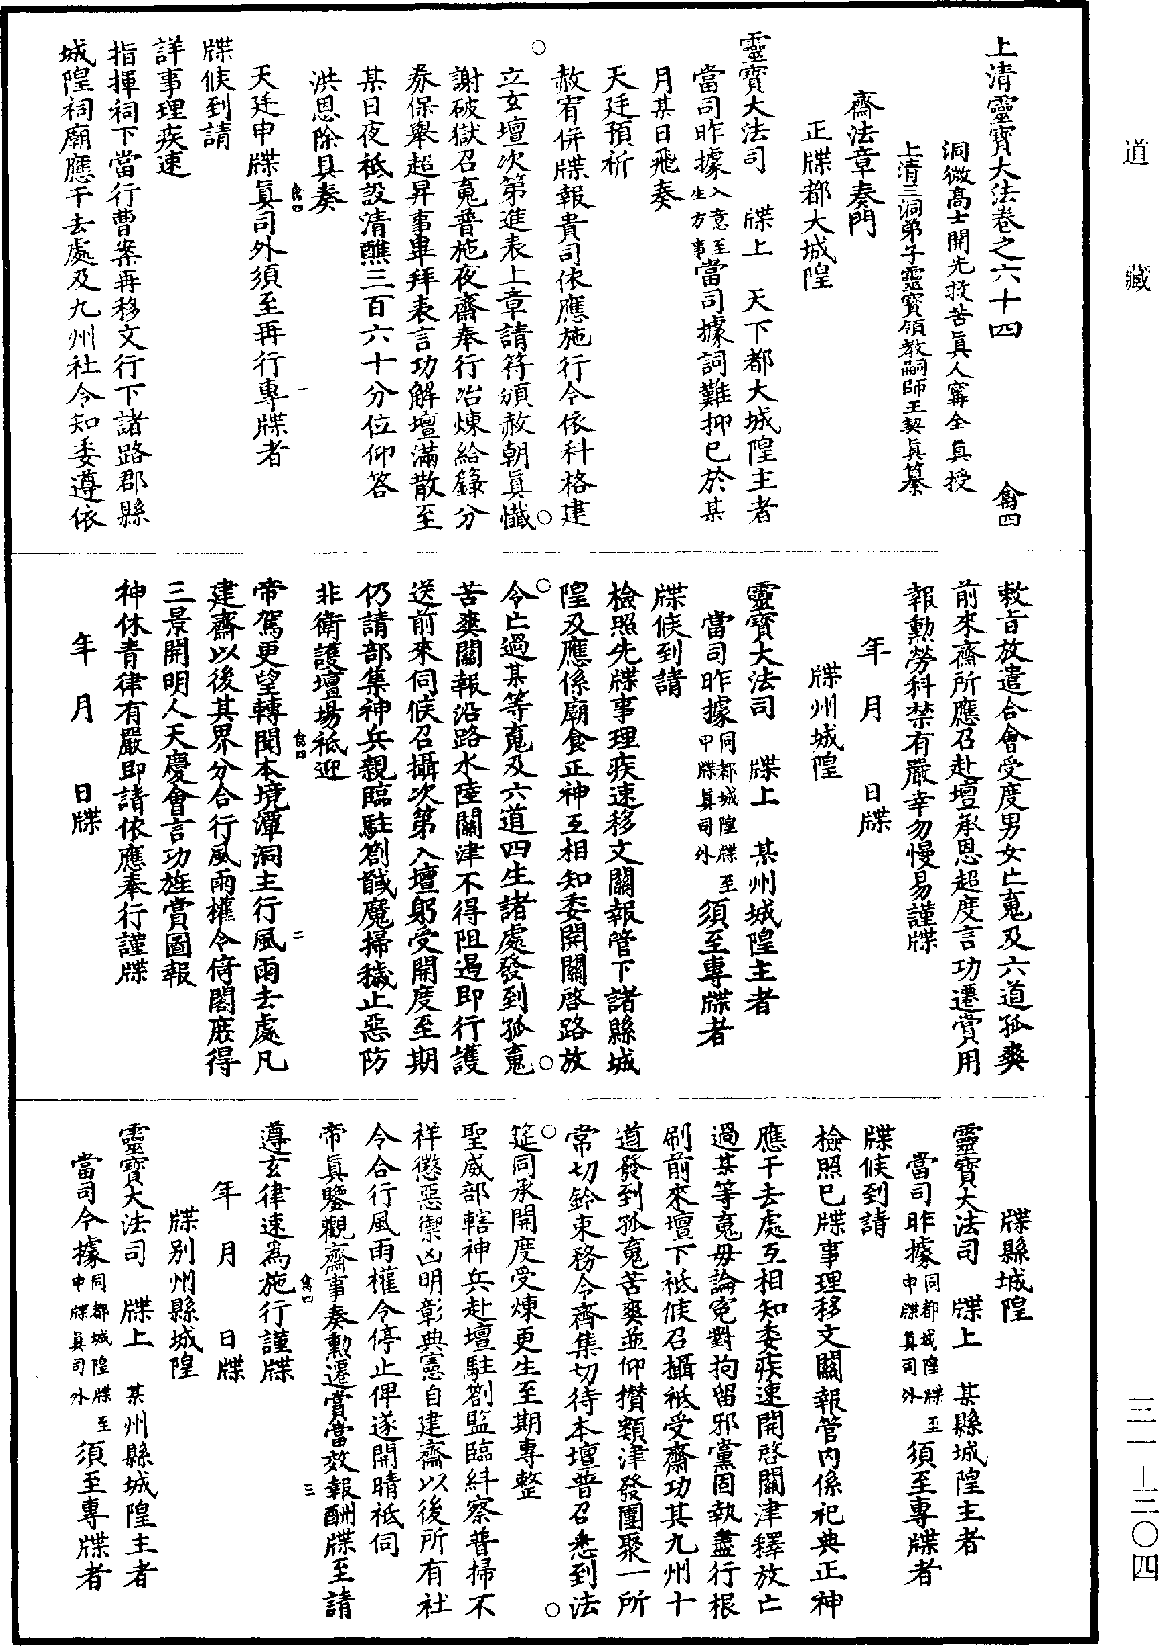 道藏
上清靈寶大法卷之六十四　禽四
洞微高士開先救苦眞人甯全眞授
上清三洞弟子靈寶領教嗣師王契眞纂
齋法章奏門
正牒都大城隍
靈寶大法司　牒上　天下都大城隍主者
當司昨據入意至生方事當司據詞難抑已於某
月某日飛奏
天廷預祈
赦宥併牒報貴司依應施行今依科格建
立玄壇次第進表上章請符頒赦朝眞懺
謝破獄召䰟普施夜齋奉行冶煉給籙分
券保舉超昇事畢拜表言功解壇滿散至
某日夜袛設清醮三百六十分位仰答
洪恩除具奏
天廷申牒眞司外須至再行專牒者
牒候到請
詳事理疾速
指揮祠下當行曹案再移文行下諸路郡縣
城隍祠廟應干去處及九州社令知委遵依
敕旨放遣合會受度男女亡䰟及六道孤爽
前來齋所應召赴壇承恩超度言功遷賞用
報勳勞科禁有嚴幸勿慢易謹牒
年　月　日牒
牒州城隍
靈寶大法司　牒上　某州城隍主者
當司昨據同都城隍牒至申牒眞司外須至專牒者
牒候到請
檢照先牒事理疾速移文關報管下諸縣城
隍及應係廟食正神互相知委開關啓路放
令亡過某等䰟及六道四生諸處發到孤䰟
苦爽關報沿路水陸關津不得阻遏即行護
送前來伺候召攝次第入壇躬受開度至期
仍請部集神兵親臨駐劄馘魔掃穢止惡防
非衛護壇場袛迎
帝駕更望轉聞本境潭洞主行風雨去處凡
建齋以後其界分合行風雨權令倚閣庶得
三景開明人天慶會言功旌賞圖報
神休青律有嚴即請依應奉行謹牒
年　月　日牒
牒縣城隍
靈寶大法司　牒上　某縣城隍主者
當司昨據同都城隍牒至申牒眞司外須至專牒者
牒候到請
檢照已牒事理移文關報管內係祀典正神
應干去處互相知委疾速開啓關津釋放亡
過某等䰟毋論寃對拘留邪黨固執盡行根
刷前來壇下袛候召攝袛受齋功其九州十
道發到孤䰟苦爽並仰攢類津發團聚一所
常切鈐束務令齊集切待本壇普召悉到法
筵同承開度受煉更生至期專整
聖威部轄神兵赴壇駐劄監臨糾察普掃不
祥懲惡禦凶明彰典憲自建齋以後所有社
令合行風雨權令停止俾遂開晴袛伺
帝眞鑒觀齋事奏勳遷賞當效報酬牒至請
遵玄律速爲施行謹牒
年　月　日牒
牒別州縣城隍
靈寶大法司　牒上　某州縣城隍主者
當司今據同都城隍牒至申牒眞司外須至專牒者
三一—三〇四